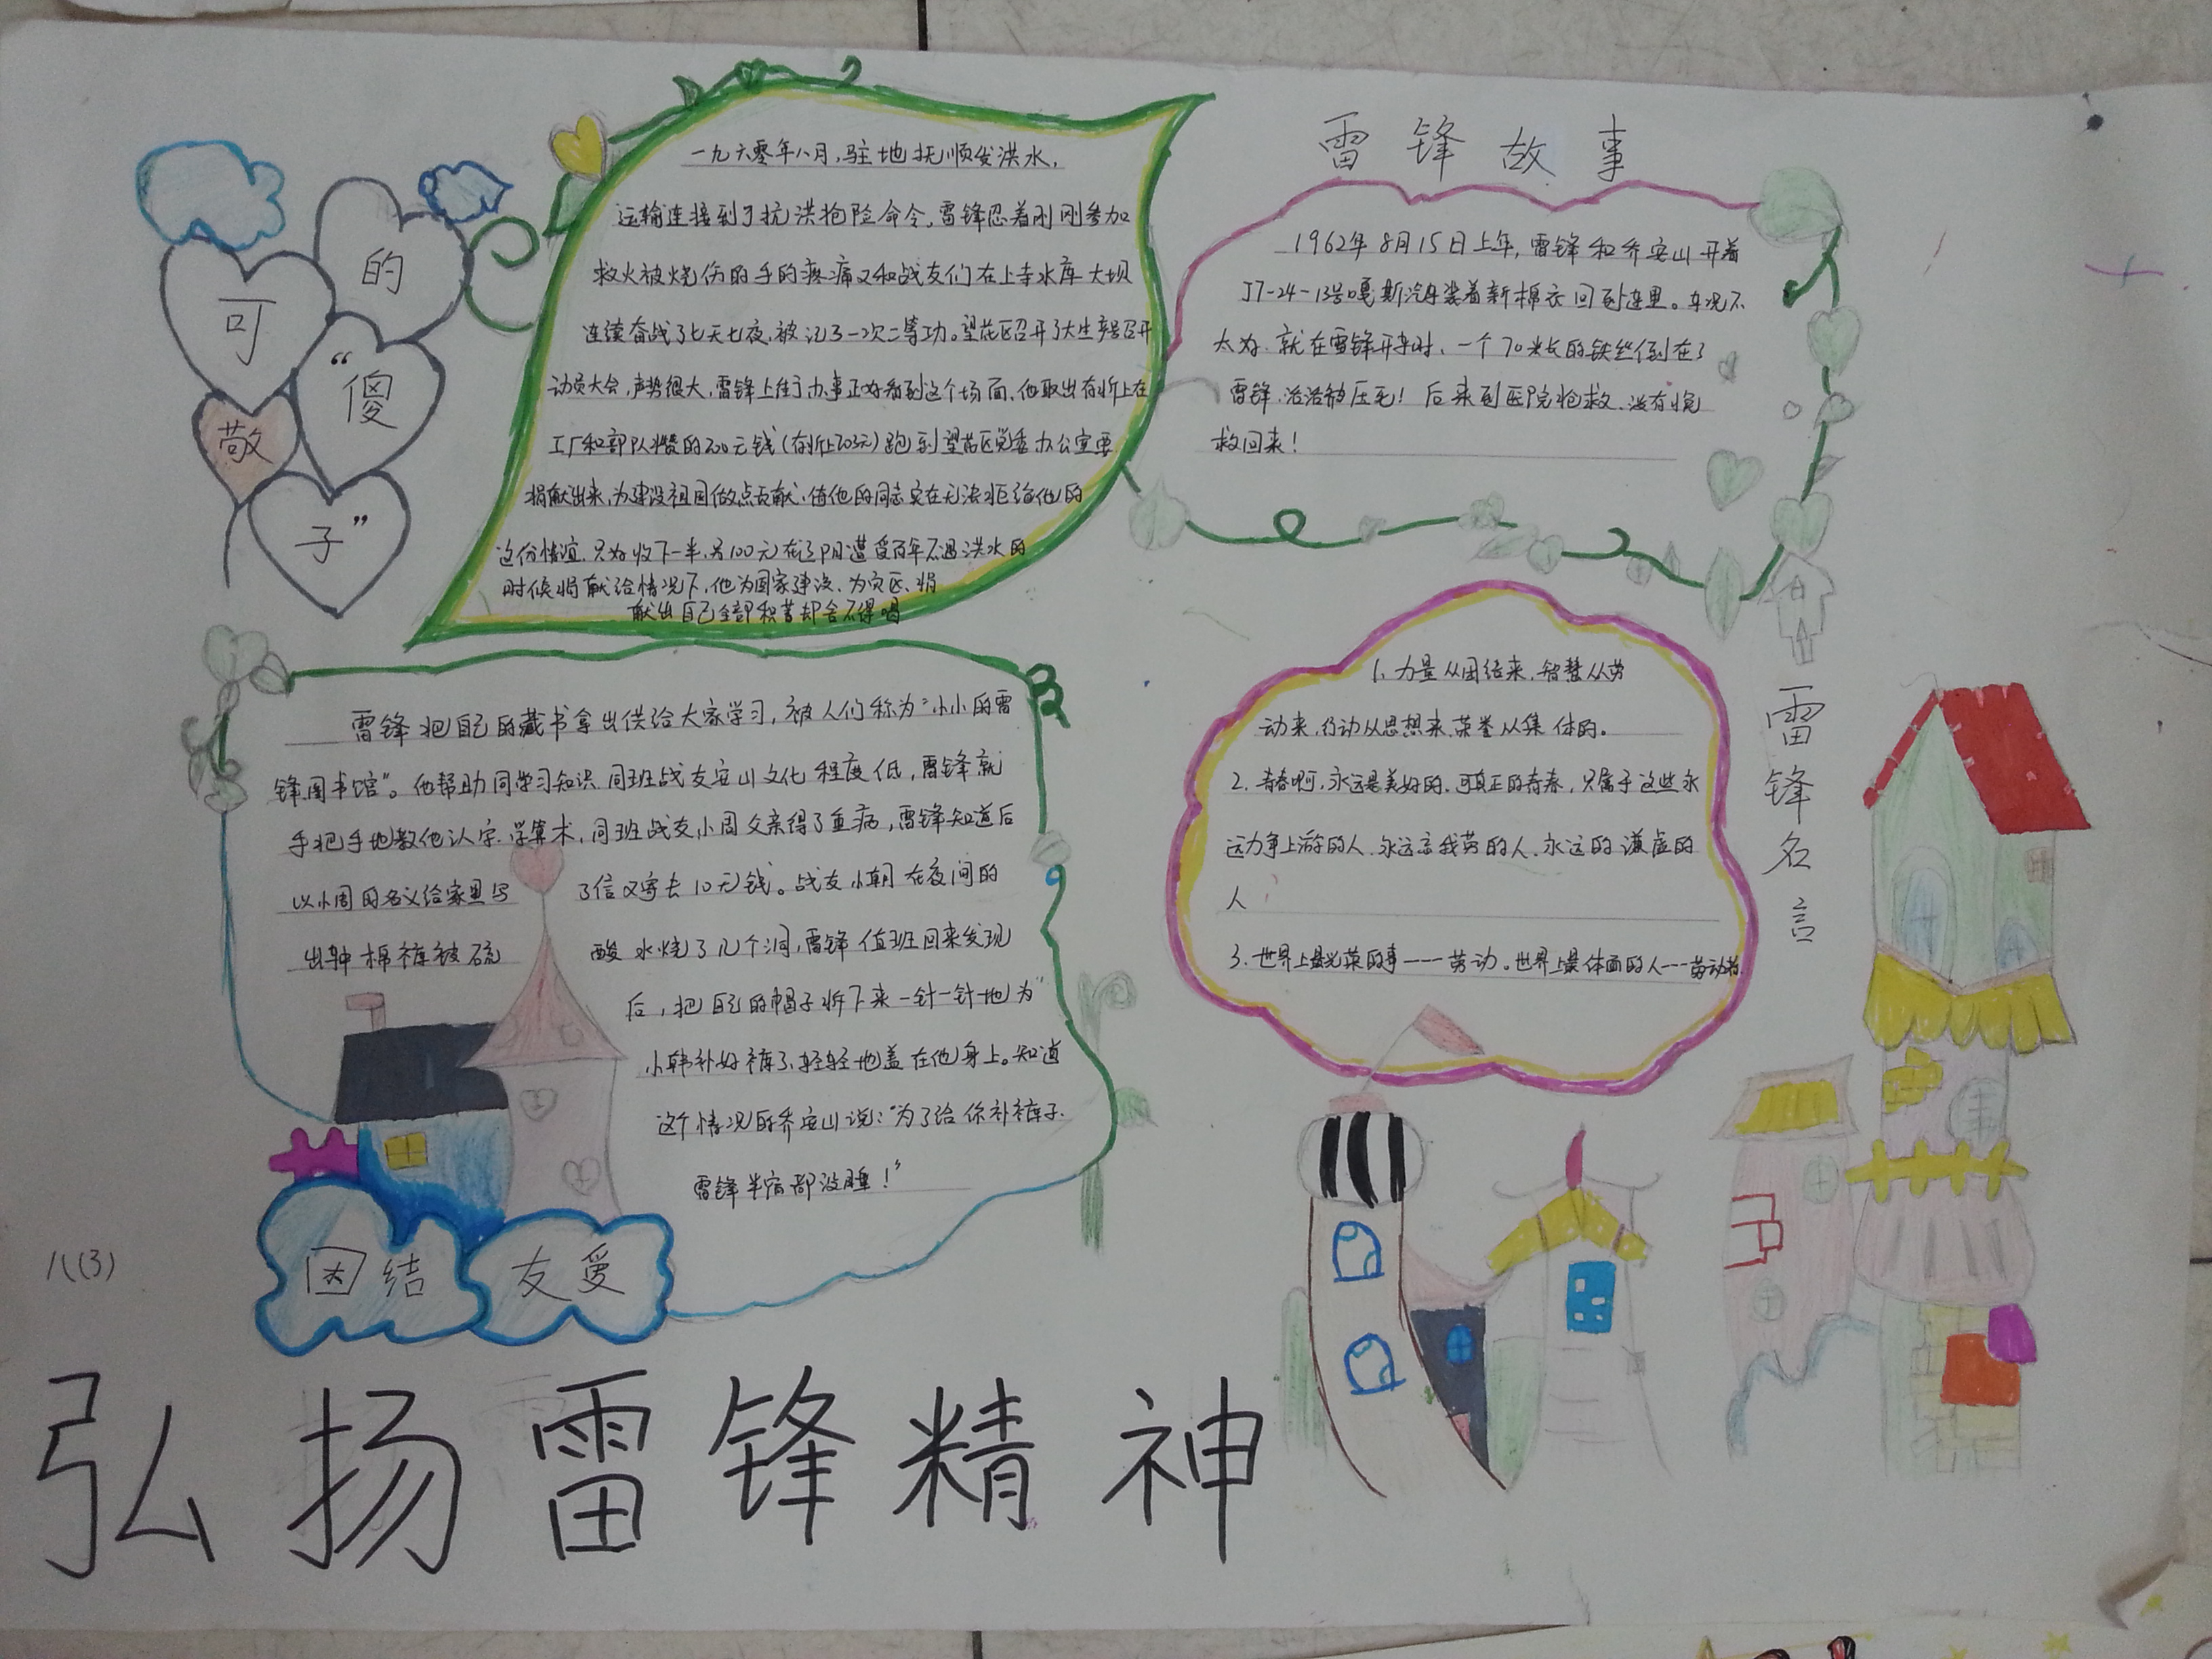 可敬的
“傻子”
一九六零年八月,驻地抚顺发洪水,
运输连接到了抗洪抢险命令,雷锋忍着刚刚参加
救火被烧伤的手的疼痛又和战友们在上寺水库大坝
连续奋战了七天七夜,被记了一次二等功。望花区召开了大生产号召开
动员大会,声势很大,雷锋上街办事正好看到这个场面,他取出存折上在
工厂和部队攒的200元钱(存折上203元)跑到望花区党委办公室要
捐献出来,为建设祖国做点贡献,值他的同志实在无法拒给他的
这份情谊,只好收下一半,另100元在辽阳遭受百年不遇洪水的
时候捐献给情况下,他为国家建设,为灾区,捐
献出自己全部积蓄却舍不得喝
雷锋故事
1962年8月15日上午,雷锋和乔安山开着
J7-24-13号嘎斯汽车装着新棉衣回到连里。车况不
太好,就在雷锋开车时,一个70米长的铁丝倒在了
雷锋,活活被压死!后来到医院抢救,没有
救回来!
雷锋把自己的藏书拿出供给大家学习,被人们称为“小小的雷
锋图书馆”。他帮助同学习知识 同班战友安山文化程度低,雷锋就
手把手地教他认字.学算术,同班战友小周父亲得了重病,雷锋知道后
以小周的名义给家里写了信又寄去10元钱。战友小朝在夜间的
出钟棉裤被硫酸水烧了几个洞,雷锋值班回来发现
后,把自己的帽子拆下来一针一针地为"
小韩补好裤子,轻轻地盖在他身上。知道
这个情况的乔安山说:“为了给你补裤子.
雷锋半宿都没睡!”
团结 友爱
雷锋名言
1、力量从团结来,智慧从劳
动来,行动从思想来,荣誉从集体的。
2、青春啊,永远是美好的,可真正的青春,只属于这些永
远力争上游的人,永远忘我劳的人,永远的谦虚的
人
3、世界上最光荣的事---劳动。世界上最体面的人---劳动者.
八(3)
弘扬雷锋精神